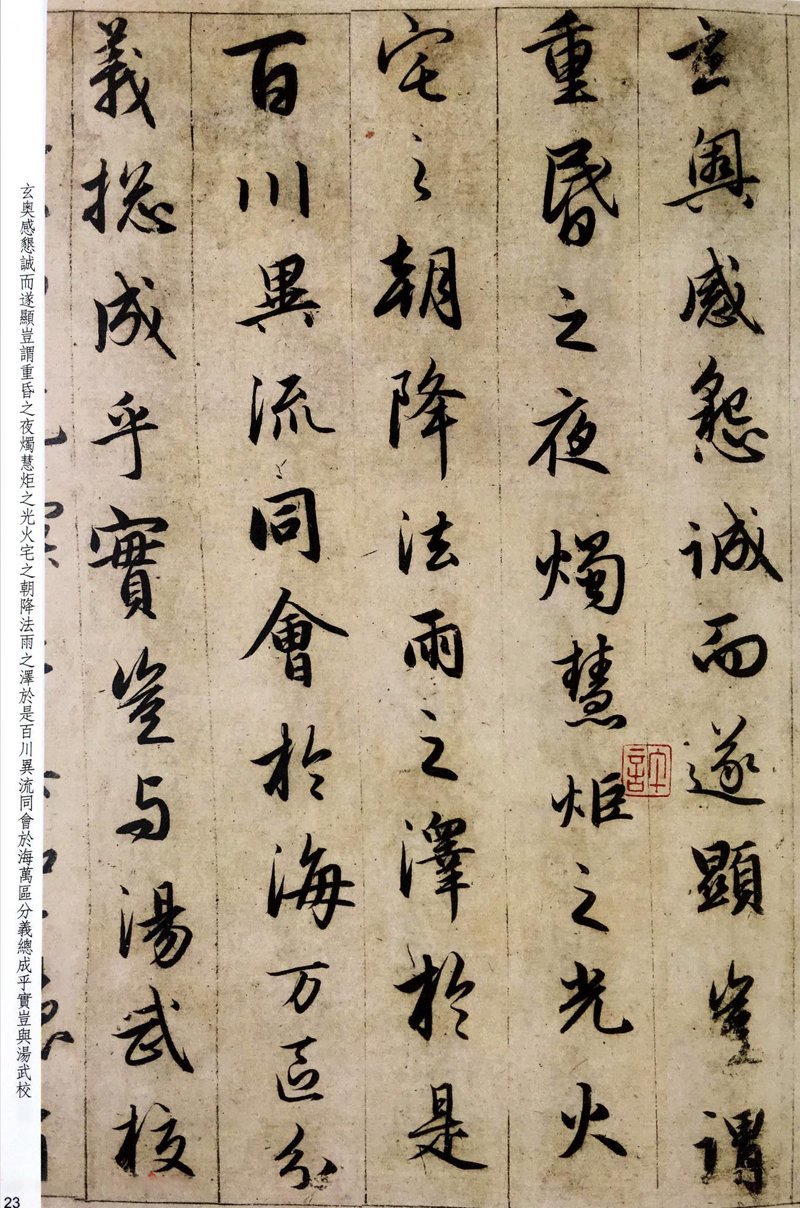 玄奥感懇誠而遂顯豈謂
重昏之夜燭慧炬之光火
宅之朝降法雨之澤於是
百川異流同會於海万區分
義捴成乎實豈与湯武校
玄奥感懇誠而遂顯豈謂重昏之夜燭慧炬之光火宅之朝降法雨之澤於是百川異流同會於海萬區分義總成乎實豈與湯武校
23